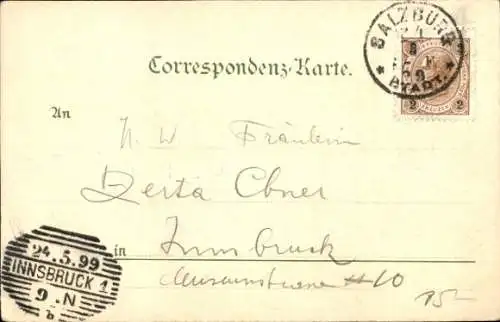 SALZBURG
STADT
2 2
Correspondenz-Karte.
An
Fräulein
Berta Ebner
in Innsbruck
Museumstrasse #10
24.5.99
INNSBRUCK 1
9.N
b
15-